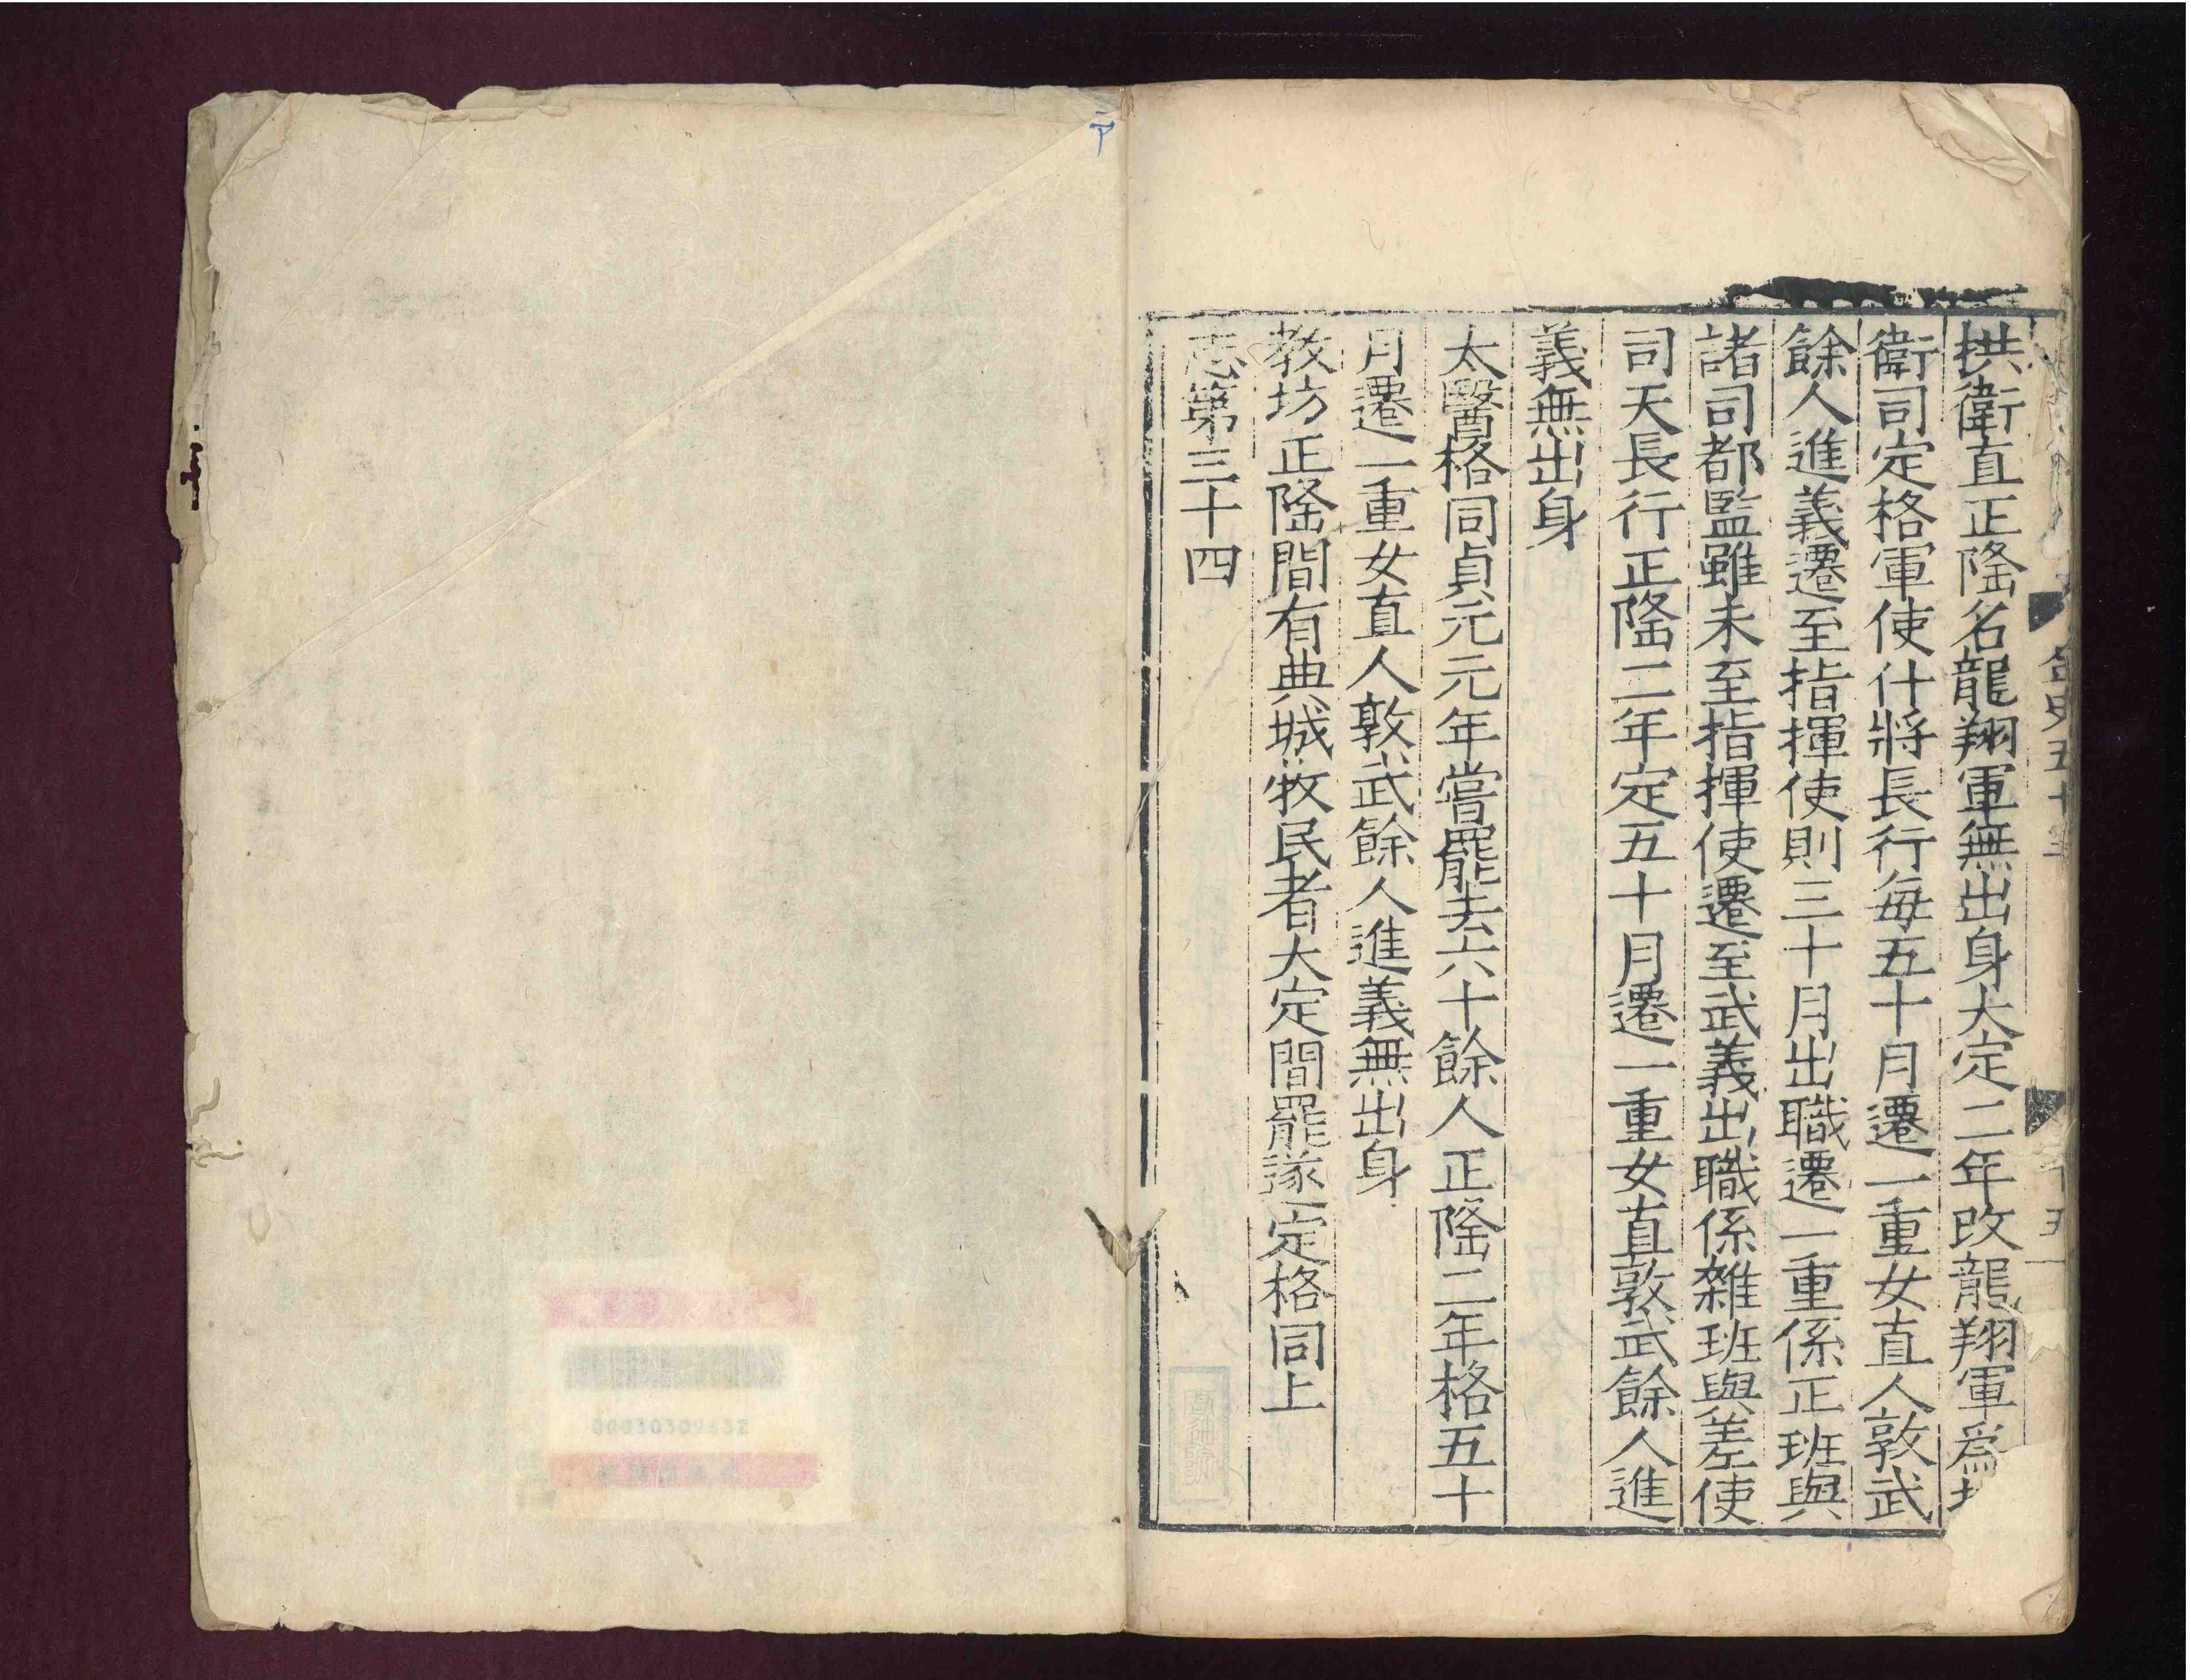 拱衛直正隆名龍翔軍無出身大定二年改龍翔軍爲
衛司定格軍使什將長行每五十月遷一重女直人敦武
餘人進義遷至指揮使則三十月出職遷一重係正班與
諸司都監雖未至指揮使遷至武義出職係雜班與差使
司天長行正隆二年定五十月遷一重女直敦武餘人進
義無出身
太醫格同貞元元年嘗罷去六十餘人正隆二年格五十
月遷一重女直人敦武餘人進義無出身
教坊正隆間有典城牧民者大定間罷遂定格同上
志第三十四
金史五十